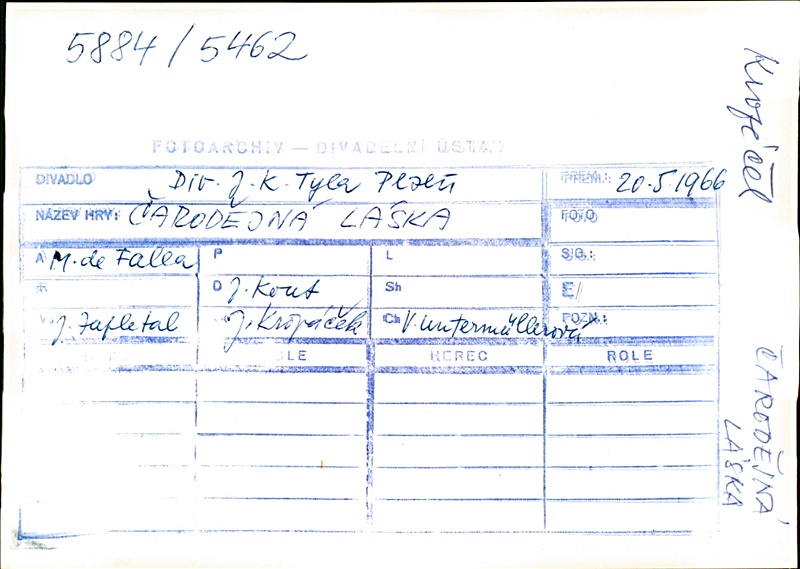 5884/5462
FOTOARCHIV — DIVADELNÍ ÚSTAV
DIVADLO Div. J. K. Tyla Plzeň PREM.: 20.5.1966
NÁZEV HRY: ČARODEJNÁ LÁSKA FOTO
A M. de Falla P L SIG.:
R D J. Kout Sh E/
V J. Zapletal J. Kropáček Ch V. Untermüllerová POZN.:
ROLE HEREC ROLE
ČARODĚJNÁ
LÁSKA